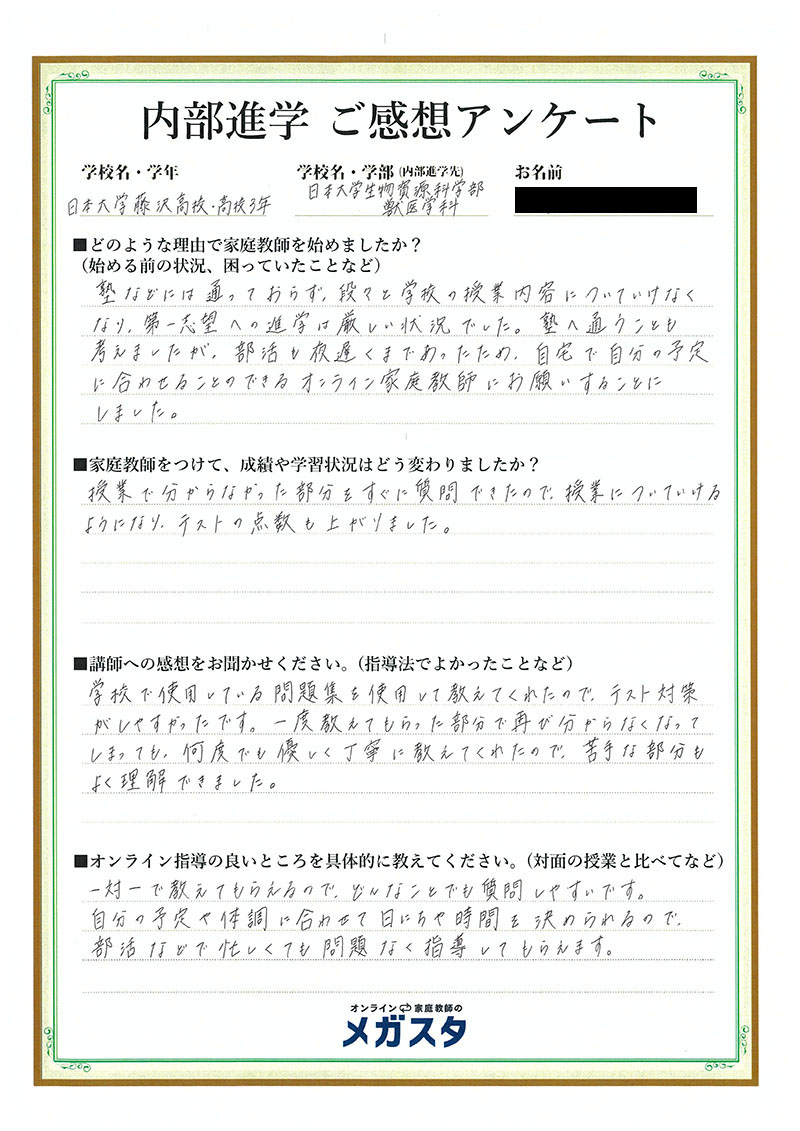 内部進学 ご感想アンケート
学校名・学年
学校名・学部(内部進学先)
お名前
日本大学藤沢高校・高校3年
日本大学生物資源科学部
獣医学科
■どのような理由で家庭教師を始めましたか？
（始める前の状況、困っていたことなど）
塾などには通っておらず、段々と学校の授業内容についていけなく
なり、第一志望への進学は厳しい状況でした。塾へ通うことも
考えましたが、部活も夜遅くまであったため、自宅で自分の予定
に合わせることのできるオンライン家庭教師にお願いすることに
しました。
■家庭教師をつけて、成績や学習状況はどう変わりましたか？
授業で分からなかった部分をすぐに質問できたので、授業についていける
ようになり、テストの点数も上がりました。
■講師への感想をお聞かせください。（指導法でよかったことなど）
学校で使用している問題集を使用して教えてくれたので、テスト対策
がしやすかったです。一度教えてもらった部分で再び分からなくなって
しまっても、何度でも優しく丁寧に教えてくれたので、苦手な部分も
よく理解できました。
■オンライン指導の良いところを具体的に教えてください。（対面の授業と比べてなど）
一対一で教えてもらえるので、どんなことでも質問しやすいです。
自分の予定や体調に合わせて日にちや時間を決められるので、
部活などで忙しくても問題なく指導してもらえます。
オンライン家庭教師の
メガスタ